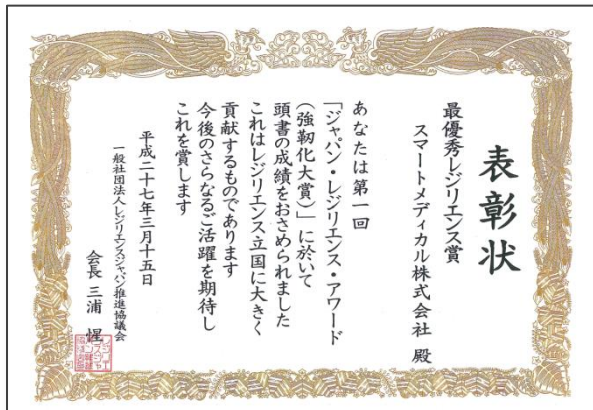 表彰状
最優秀レジリエンス賞
スマートメディカル株式会社 殿
あなたは第一回
「ジャパン・レジリエンス・アワード
(強靭化大賞)」に於いて
頭書の成績をおさめられました
これはレジリエンス立国に大きく
貢献するものであります
今後のさらなるご活躍を期待し
これを賞します
平成二十七年三月十五日
一般社団法人レジリエンスジャパン推進協議会
会長 三浦 惺